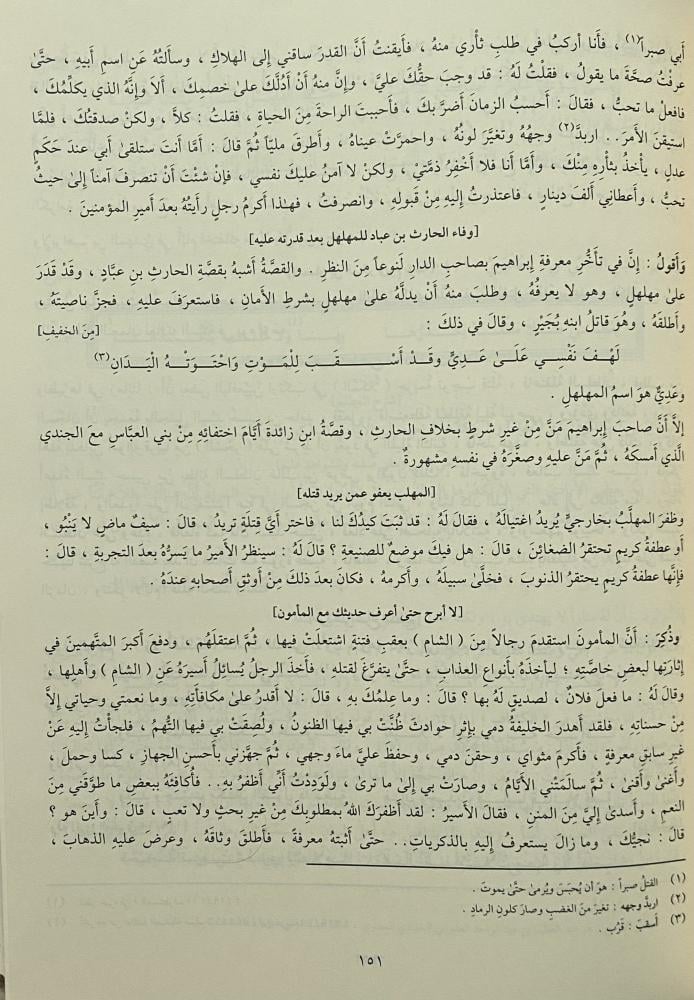 أَبي صبراً(١) ، فأَنا أركبُ في طلبِ ثأْري منهُ ، فأَيقنتُ أَنَّ القدرَ ساقني إِلى الهلاكِ ، وسأَلتهُ عَنِ اسمِ أَبيهِ ، حتَّىٰ
عرفْتُ صحَّةَ ما يقولُ ، فقلْتُ لهُ : قد وجبَ حقُّكَ عليَّ ، وإِنَّ منهُ أَنْ أَدُلَّكَ علىٰ خصمِكَ ، أَلاَ وإِنَّهُ الذي يكلِّمُكَ ،
فافعلْ ما تحبُّ ، فقالَ : أَحسبُ الزمانَ أَضرَّ بكَ ، فأَحببتَ الراحةَ مِنَ الحياةِ ، فقلتُ : كلاَّ ، ولكنْ صدقتُكَ ، فلمَّا
استيقنَ الأَمرَ.. اربدَّ(٢) وجهُهُ وتغيَّرَ لونُهُ ، واحمرَّتْ عيناهُ ، وأَطرقَ مليّاً ثُمَّ قالَ : أَمَّا أَنتَ ستلقىٰ أَبي عندَ حَكَمٍ
عدلٍ ، يأْخذُ بثأْرِهِ مِنْكَ ، وأَمَّا أَنا فلا أَخْفِرُ ذمَّتي ، ولكنْ لا آمنُ عليكَ نفسي ، فإِنْ شئْتَ أَنْ تنصرفَ آمناً إِلىٰ حيثُ
تحبُّ ، وأَعطاني أَلفَ دينارٍ ، فاعتذرتُ إِليهِ مِنْ قبولِهِ ، وانصرفتُ ، فهـٰذا أَكرمُ رجلٍ رأَيتُهُ بعدَ أَميرِ المؤمنينَ .
[وفاء الحارث بن عباد للمهلهل بعد قدرته عليه]
وَأَقولُ : إِنَّ في تأَخُّرِ معرفةِ إِبراهيمَ بصاحبِ الدارِ لَنوعاً مِنَ النظرِ . والقصَّةُ أَشبهُ بقصَّةِ الحارثِ بنِ عبَّادٍ ، وقَدْ قَدَرَ
علىٰ مهلهلٍ ، وهو لا يعرفُهُ ، وطلبَ منهُ أَنْ يدلَّهُ علىٰ مهلهلٍ بشرطِ الأَمانِ ، فاستعرَفَ عليهِ ، فجزَّ ناصيتَهُ ،
وأَطلقَهُ ، وهُوَ قاتلُ ابنِهِ بُجَيْرٍ ، وقالَ في ذلكَ :
[مِنَ الخفيفِ]
لَهْـفَ نَفْسِـي عَلَـىٰ عَـدِيٍّ وقَـدْ أَسْـ ـقَـبَ لِلْمَـوْتِ وَاحْتَـوَتْـهُ الْيَـدَانِ(٣)
وعَدِيٌّ هوَ اسمُ المهلهلِ .
إِلاَّ أَنَّ صاحبَ إِبراهيمَ مَنَّ مِنْ غيرِ شرطٍ بخلافِ الحارثِ ، وقصَّةُ ابنِ زائدةَ أَيَّامَ اختفائِهِ مِنْ بني العبَّاسِ معَ الجندي
الَّذي أَمسكَهُ ، ثُمَّ مَنَّ عليهِ وصغَّرَهُ في نفسِهِ مشهورةٌ .
[المهلب يعفو عمن يريد قتله]
وظفرَ المهلَّبُ بخارجيٍّ يُريدُ اغتيالَهُ ، فقالَ لهُ : قد ثبَتَ كيدُكَ لنا ، فاختر أَيَّ قِتلَةٍ تريدُ ، قالَ : سيفٌ ماضٍ لا يَنْبُو ،
أَو عطفةُ كريمٍ تحتقرُ الضغائنَ ، قالَ : هل فيكَ موضعٌ للصنيعةِ ؟ قالَ لهُ : سينظرُ الأَميرُ ما يَسرُّهُ بعدَ التجربةِ ، قالَ :
فإِنَّها عطفةُ كريمٍ يحتقرُ الذنوبَ ، فخلَّىٰ سبيلَهُ ، وأَكرمهُ ، فكانَ بعدَ ذلكَ مِنْ أَوثقِ أَصحابِهِ عندَهُ .
[لا أبرح حتىٰ أعرف حديثك مع المأمون]
وذُكِرَ : أَنَّ المأمونَ استقدمَ رجالاً مِنَ ( الشامِ ) بعقبِ فتنةٍ اشتعلَتْ فيها ، ثُمَّ اعتقلَهُم ، ودفعَ أَكبرَ المتَّهمينَ في
إِثارتِها لبعضِ خاصَّتِهِ ؛ ليأخذَهُ بأَنواعِ العذابِ ، حتَّىٰ يتفرَّغَ لقتلهِ ، فأَخذَ الرجلُ يُسائلُ أَسيرَهُ عَنِ ( الشامِ ) وأَهلِها ،
وقالَ لهُ : ما فعلَ فلانٌ ، لصديقٍ لَهُ بها ؟ قالَ : وما علمُكَ بهِ ، قالَ : لا أَقدرُ علىٰ مكافأَتِهِ ، وما نعمتي وحياتي إِلاَّ
مِنْ حسناتِهِ ، فلقد أَهدرَ الخليفةُ دمي بإِثرِ حوادثَ ظُنَّتْ بي فيها الظنونُ ، ولُصِقَتْ بي فيها التُّهمُ ، فلجأْتُ إِليهِ عَنْ
غيرِ سابقِ معرفةٍ ، فأَكرمَ مثوايَ ، وحقنَ دمي ، وحفظَ عليَّ ماءَ وجهي ، ثُمَّ جهَّزني بأَحسنِ الجهازِ ، كسا وحملَ ،
وأَغنىٰ وأَقنىٰ ، ثُمَّ سالَمَتْني الأَيَّامُ ، وصارَتْ بي إِلىٰ ما ترىٰ ، ولَوَدِدْتُ أَنِّي أَظفرُ بهِ.. فأُكافِئَهُ ببعضِ ما طوَّقَني مِنَ
النعمِ ، وأَسدىٰ إِليَّ مِنَ المننِ ، فقالَ الأَسيرُ : لقد أَظفرَكَ اللهُ بمطلوبِكَ مِنْ غيرِ بحثٍ ولا تعبٍ ، قالَ : وأَينَ هو ؟
قالَ : نجيُّكَ ، وما زالَ يستعرفُ إِليهِ بالذكرياتِ.. حتَّىٰ أَثبتَهُ معرفةً ، فأَطلقَ وثاقَهُ ، وعرضَ عليهِ الذهابَ ،
(١) القتلُ صبراً : هوَ أَن يُحبَسَ ويُرمىٰ حتَّىٰ يموتَ .
(٢) اربدَّ وجهه : تغيرَ منَ الغضبِ وصارَ كلونِ الرمادِ .
(٣) أَسقبَ : قَرُبَ .
١٥١